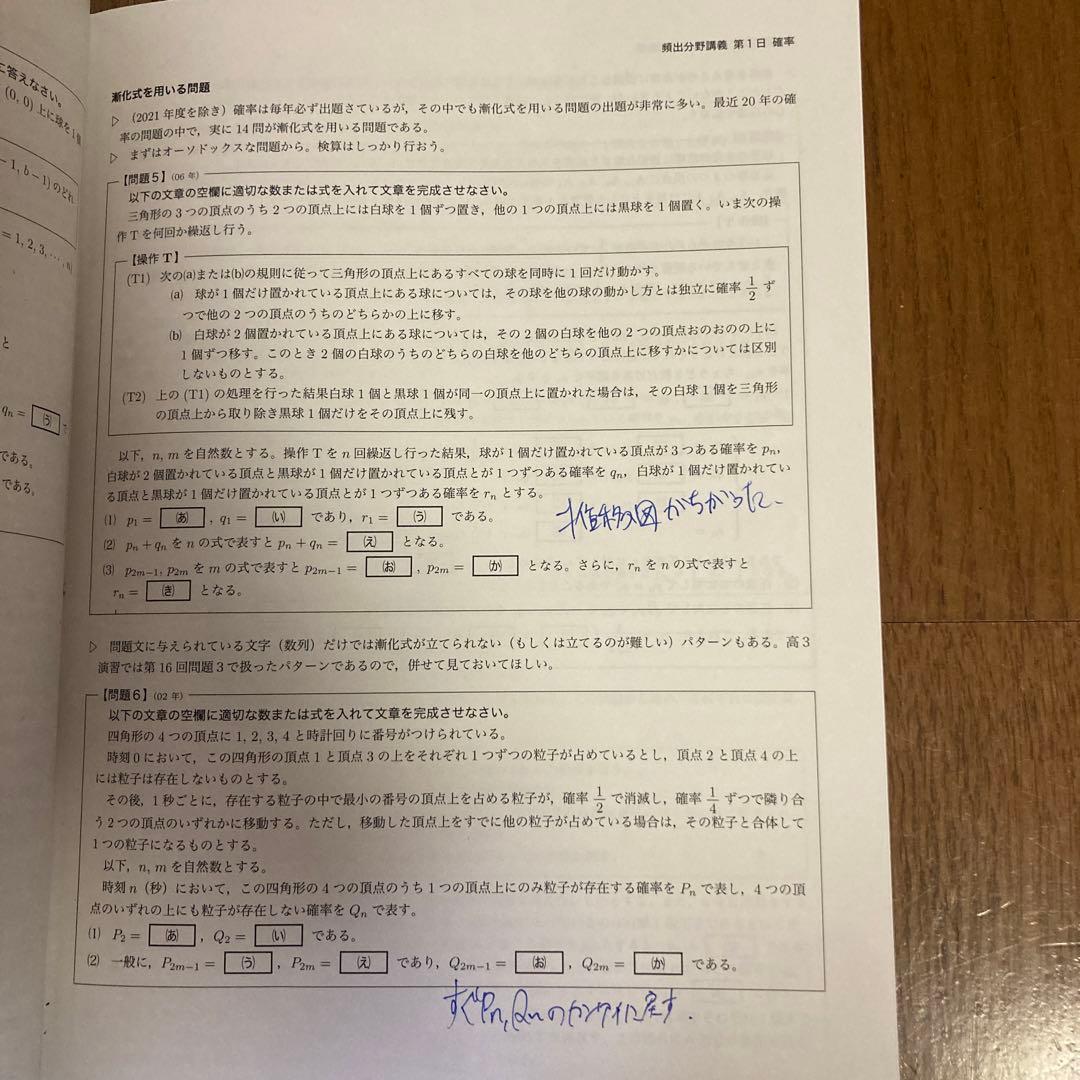 に答えなさい。
(0, 0) 上に球を1個
− 1, b − 1) のどれ
= 1, 2, 3, …, n)
と
qn = (う) で
である。
である。
頻出分野講義 第1日 確率
漸化式を用いる問題
▷ (2021 年度を除き) 確率は毎年必ず出題さているが，その中でも漸化式を用いる問題の出題が非常に多い。最近 20 年の確
率の問題の中で，実に 14 問が漸化式を用いる問題である。
▷ まずはオーソドックスな問題から。検算はしっかり行おう。
【問題5】(06 年)
以下の文章の空欄に適切な数または式を入れて文章を完成させなさい。
三角形の 3 つの頂点のうち 2 つの頂点上には白球を 1 個ずつ置き，他の 1 つの頂点上には黒球を 1 個置く。いま次の操
作 T を何回か繰返し行う。
【操作 T】
(T1) 次の(a)または(b)の規則に従って三角形の頂点上にあるすべての球を同時に 1 回だけ動かす。
(a) 球が 1 個だけ置かれている頂点上にある球については，その球を他の球の動かし方とは独立に確率 1/2 ず
つで他の 2 つの頂点のうちのどちらかの上に移す。
(b) 白球が 2 個置かれている頂点上にある球については，その 2 個の白球を他の 2 つの頂点おのおのの上に
1 個ずつ移す。このとき 2 個の白球のうちのどちらの白球を他のどちらの頂点上に移すかについては区別
しないものとする。
(T2) 上の (T1) の処理を行った結果白球 1 個と黒球 1 個が同一の頂点上に置かれた場合は，その白球 1 個を三角形
の頂点上から取り除き黒球 1 個だけをその頂点上に残す。
以下，n, m を自然数とする。操作 T を n 回繰返し行った結果，球が 1 個だけ置かれている頂点が 3 つある確率を pn，
白球が 2 個置かれている頂点と黒球が 1 個だけ置かれている頂点とが 1 つずつある確率を qn，白球が 1 個だけ置かれてい
る頂点と黒球が 1 個だけ置かれている頂点とが 1 つずつある確率を rn とする。
(1) p1 = (あ) ，q1 = (い) であり，r1 = (う) である。
推移図がちがった．
(2) pn + qn を n の式で表すと pn + qn = (え) となる。
(3) p2m−1, p2m を m の式で表すと p2m−1 = (お) ，p2m = (か) となる。さらに，rn を n の式で表すと
rn = (き) となる。
▷ 問題文に与えられている文字（数列）だけでは漸化式が立てられない（もしくは立てるのが難しい）パターンもある。高 3
演習では第 16 回問題 3 で扱ったパターンであるので，併せて見ておいてほしい。
【問題6】(02 年)
以下の文章の空欄に適切な数または式を入れて文章を完成させなさい。
四角形の 4 つの頂点に 1, 2, 3, 4 と時計回りに番号がつけられている。
時刻 0 において，この四角形の頂点 1 と頂点 3 の上をそれぞれ 1 つずつの粒子が占めているとし，頂点 2 と頂点 4 の上
には粒子は存在しないものとする。
その後，1 秒ごとに，存在する粒子の中で最小の番号の頂点上を占める粒子が，確率 1/2 で消滅し，確率 1/4 ずつで隣り合
う 2 つの頂点のいずれかに移動する。ただし，移動した頂点上をすでに他の粒子が占めている場合は，その粒子と合体して
1 つの粒子になるものとする。
以下，n, m を自然数とする。
時刻 n（秒）において，この四角形の 4 つの頂点のうち 1 つの頂点上にのみ粒子が存在する確率を Pn で表し，4 つの頂
点のいずれの上にも粒子が存在しない確率を Qn で表す。
(1) P2 = (あ) ，Q2 = (い) である。
(2) 一般に，P2m−1 = (う) ，P2m = (え) であり，Q2m−1 = (お) ，Q2m = (か) である。
すぐPn, Qnのカンケイに戻す．